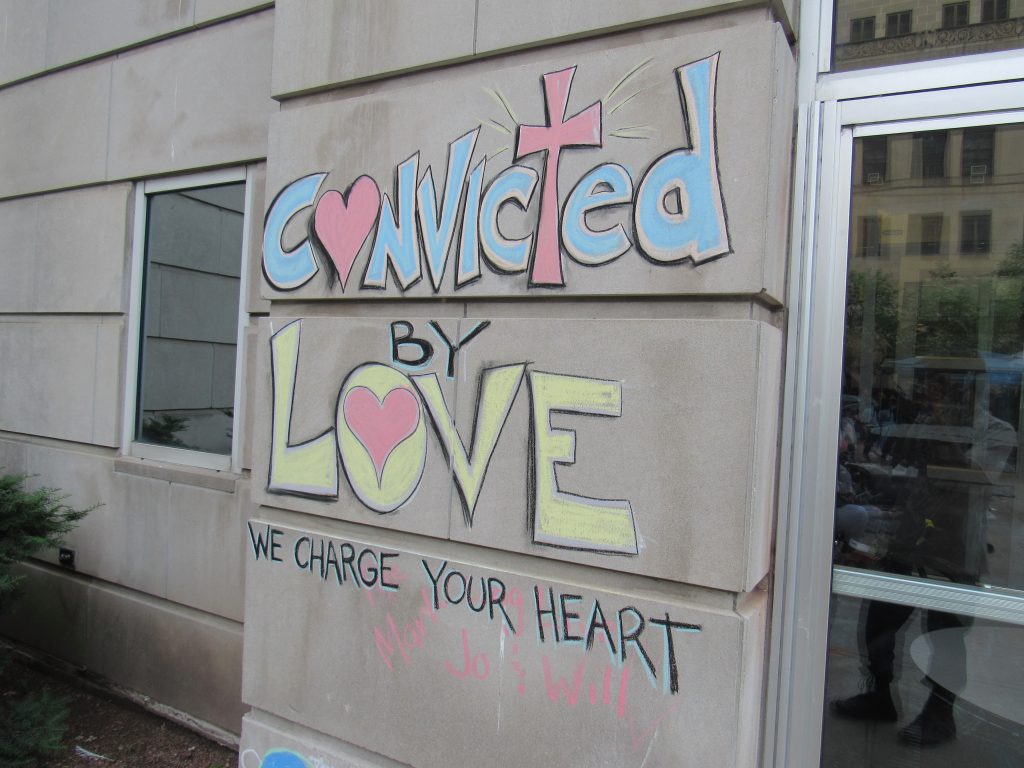 CONVICTED
BY
LOVE
WE CHARGE YOUR HEART
Jo & Will